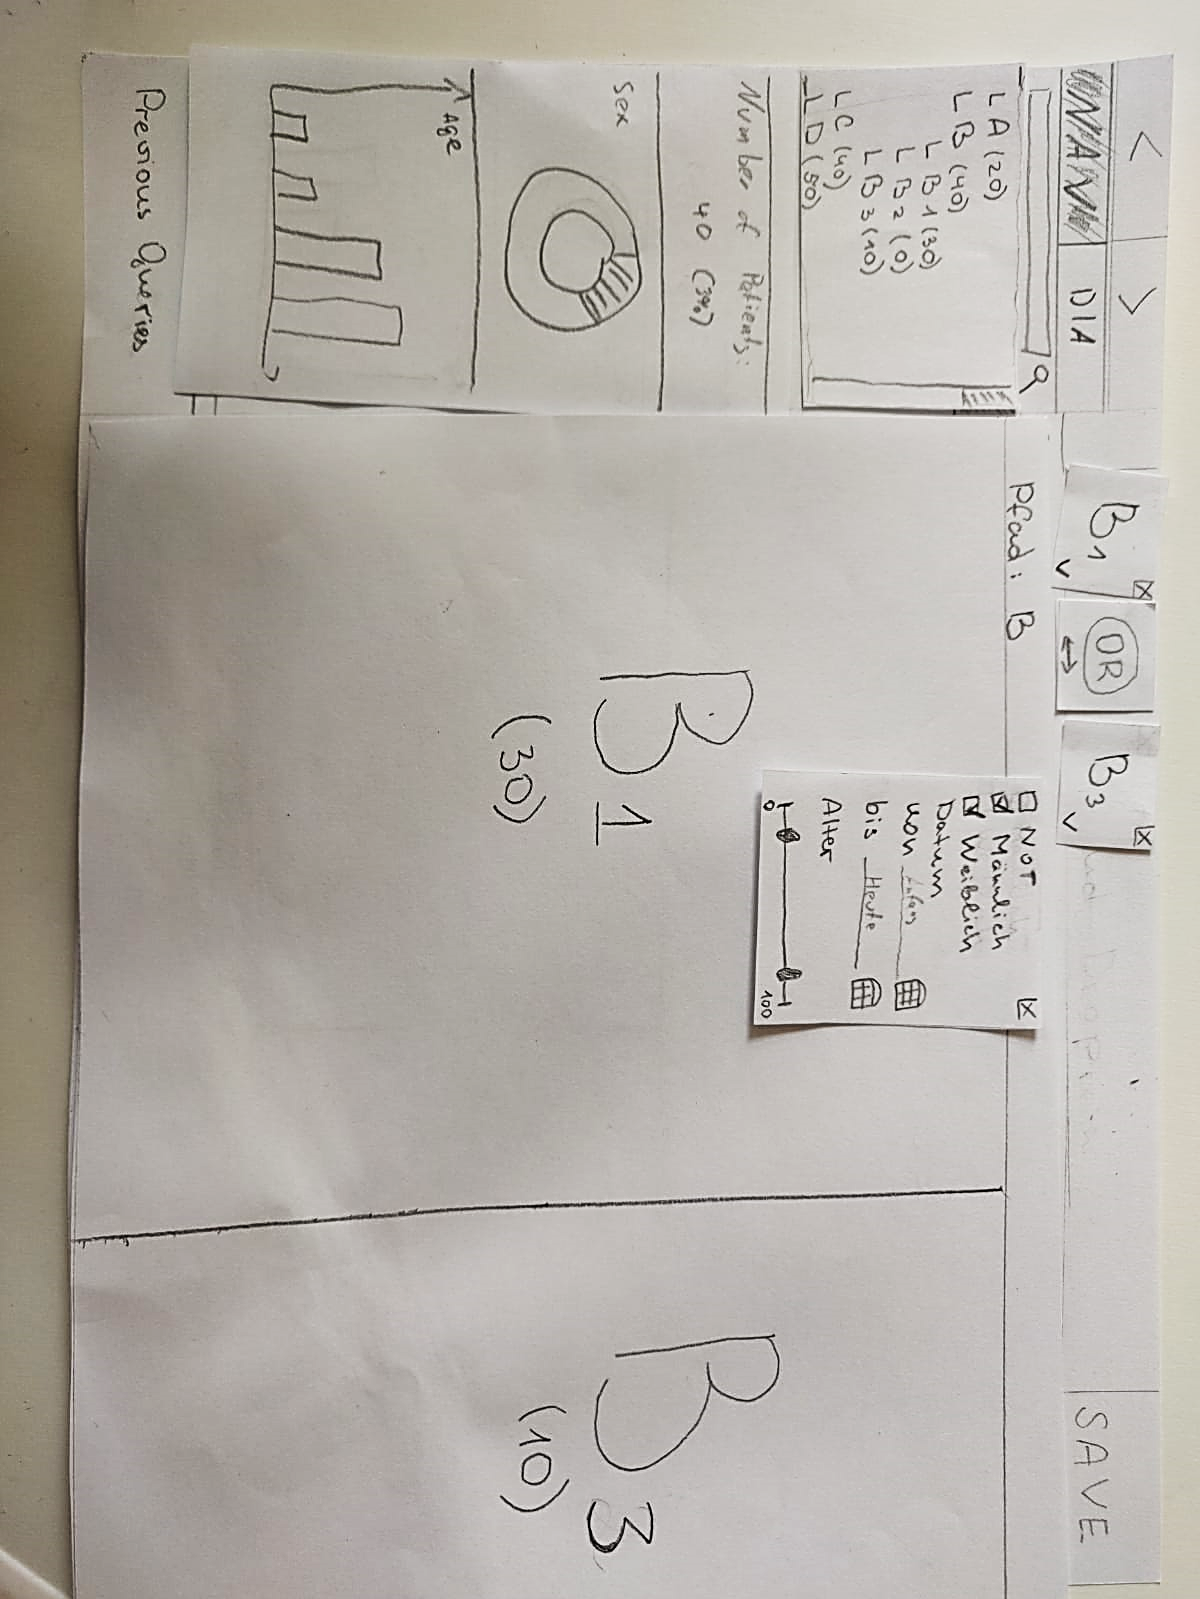 < >
ANA DIA
B1 x
OR
↔
B3 x
SAVE
L A (20)
L B (40)
L B1 (30)
L B2 (0)
L B3 (10)
L C (40)
L D (50)
Number of Patients:
40 (3%)
Sex
Age
Previous Queries
Pfad: B
NOT
Männlich
Weiblich
Datum
von
bis Heute
Alter
0 100
B1
(30)
B3
(10)